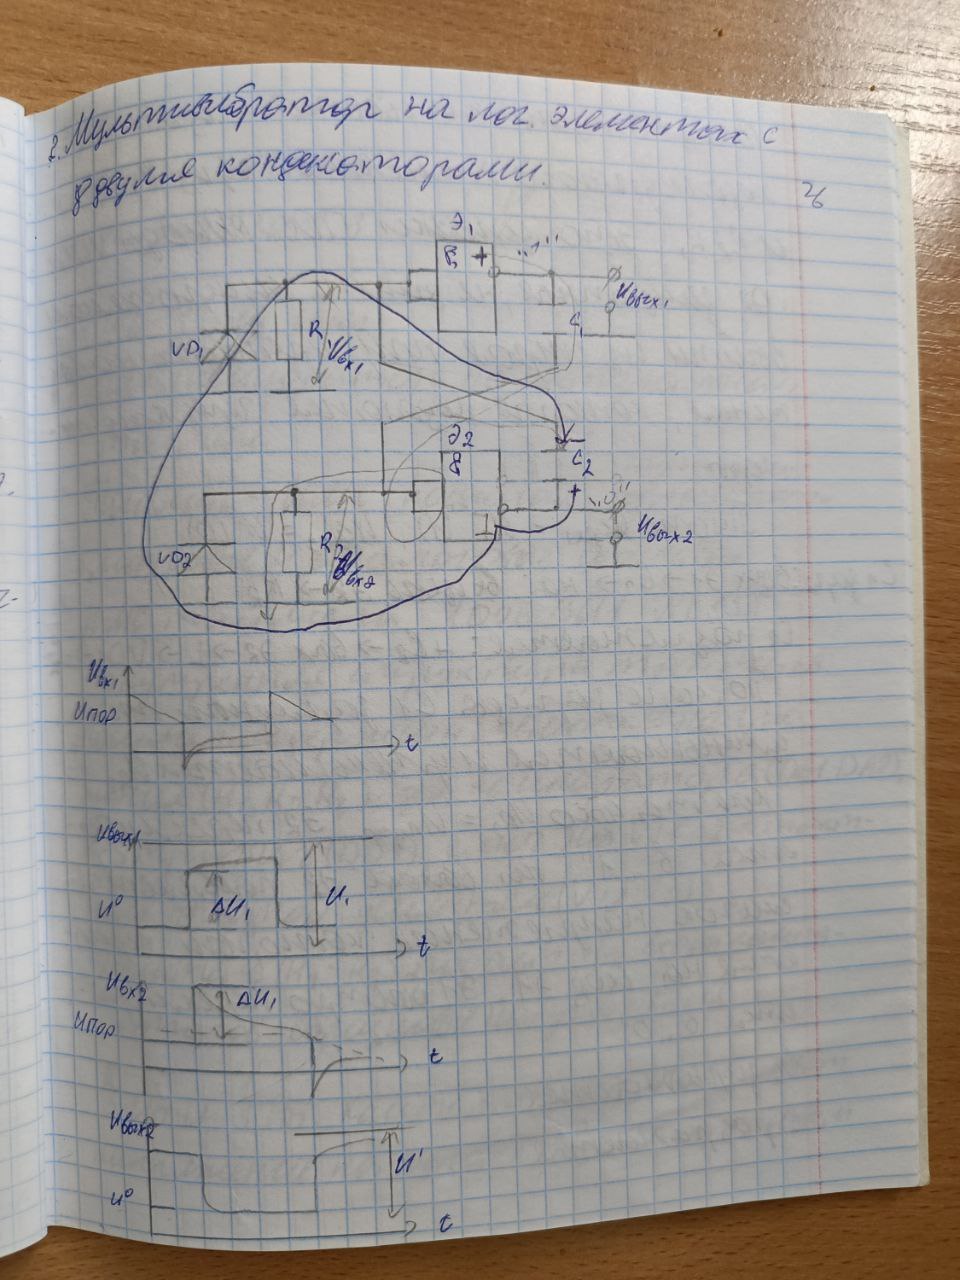 2. Мультивибратор на лог. элементах с
двумя конденсаторами.
Э1
&
"1"
Uвых1
C1
VD1
R1
Uвх1
Э2
&
C2
+
"0"
Uвых2
VD2
R2
Uвх2
Uвх1
Uпор
t
Uвых1
U⁰
ΔU1
U1
t
Uвх2
ΔU1
Uпор
t
Uвых2
U⁰
U'
t